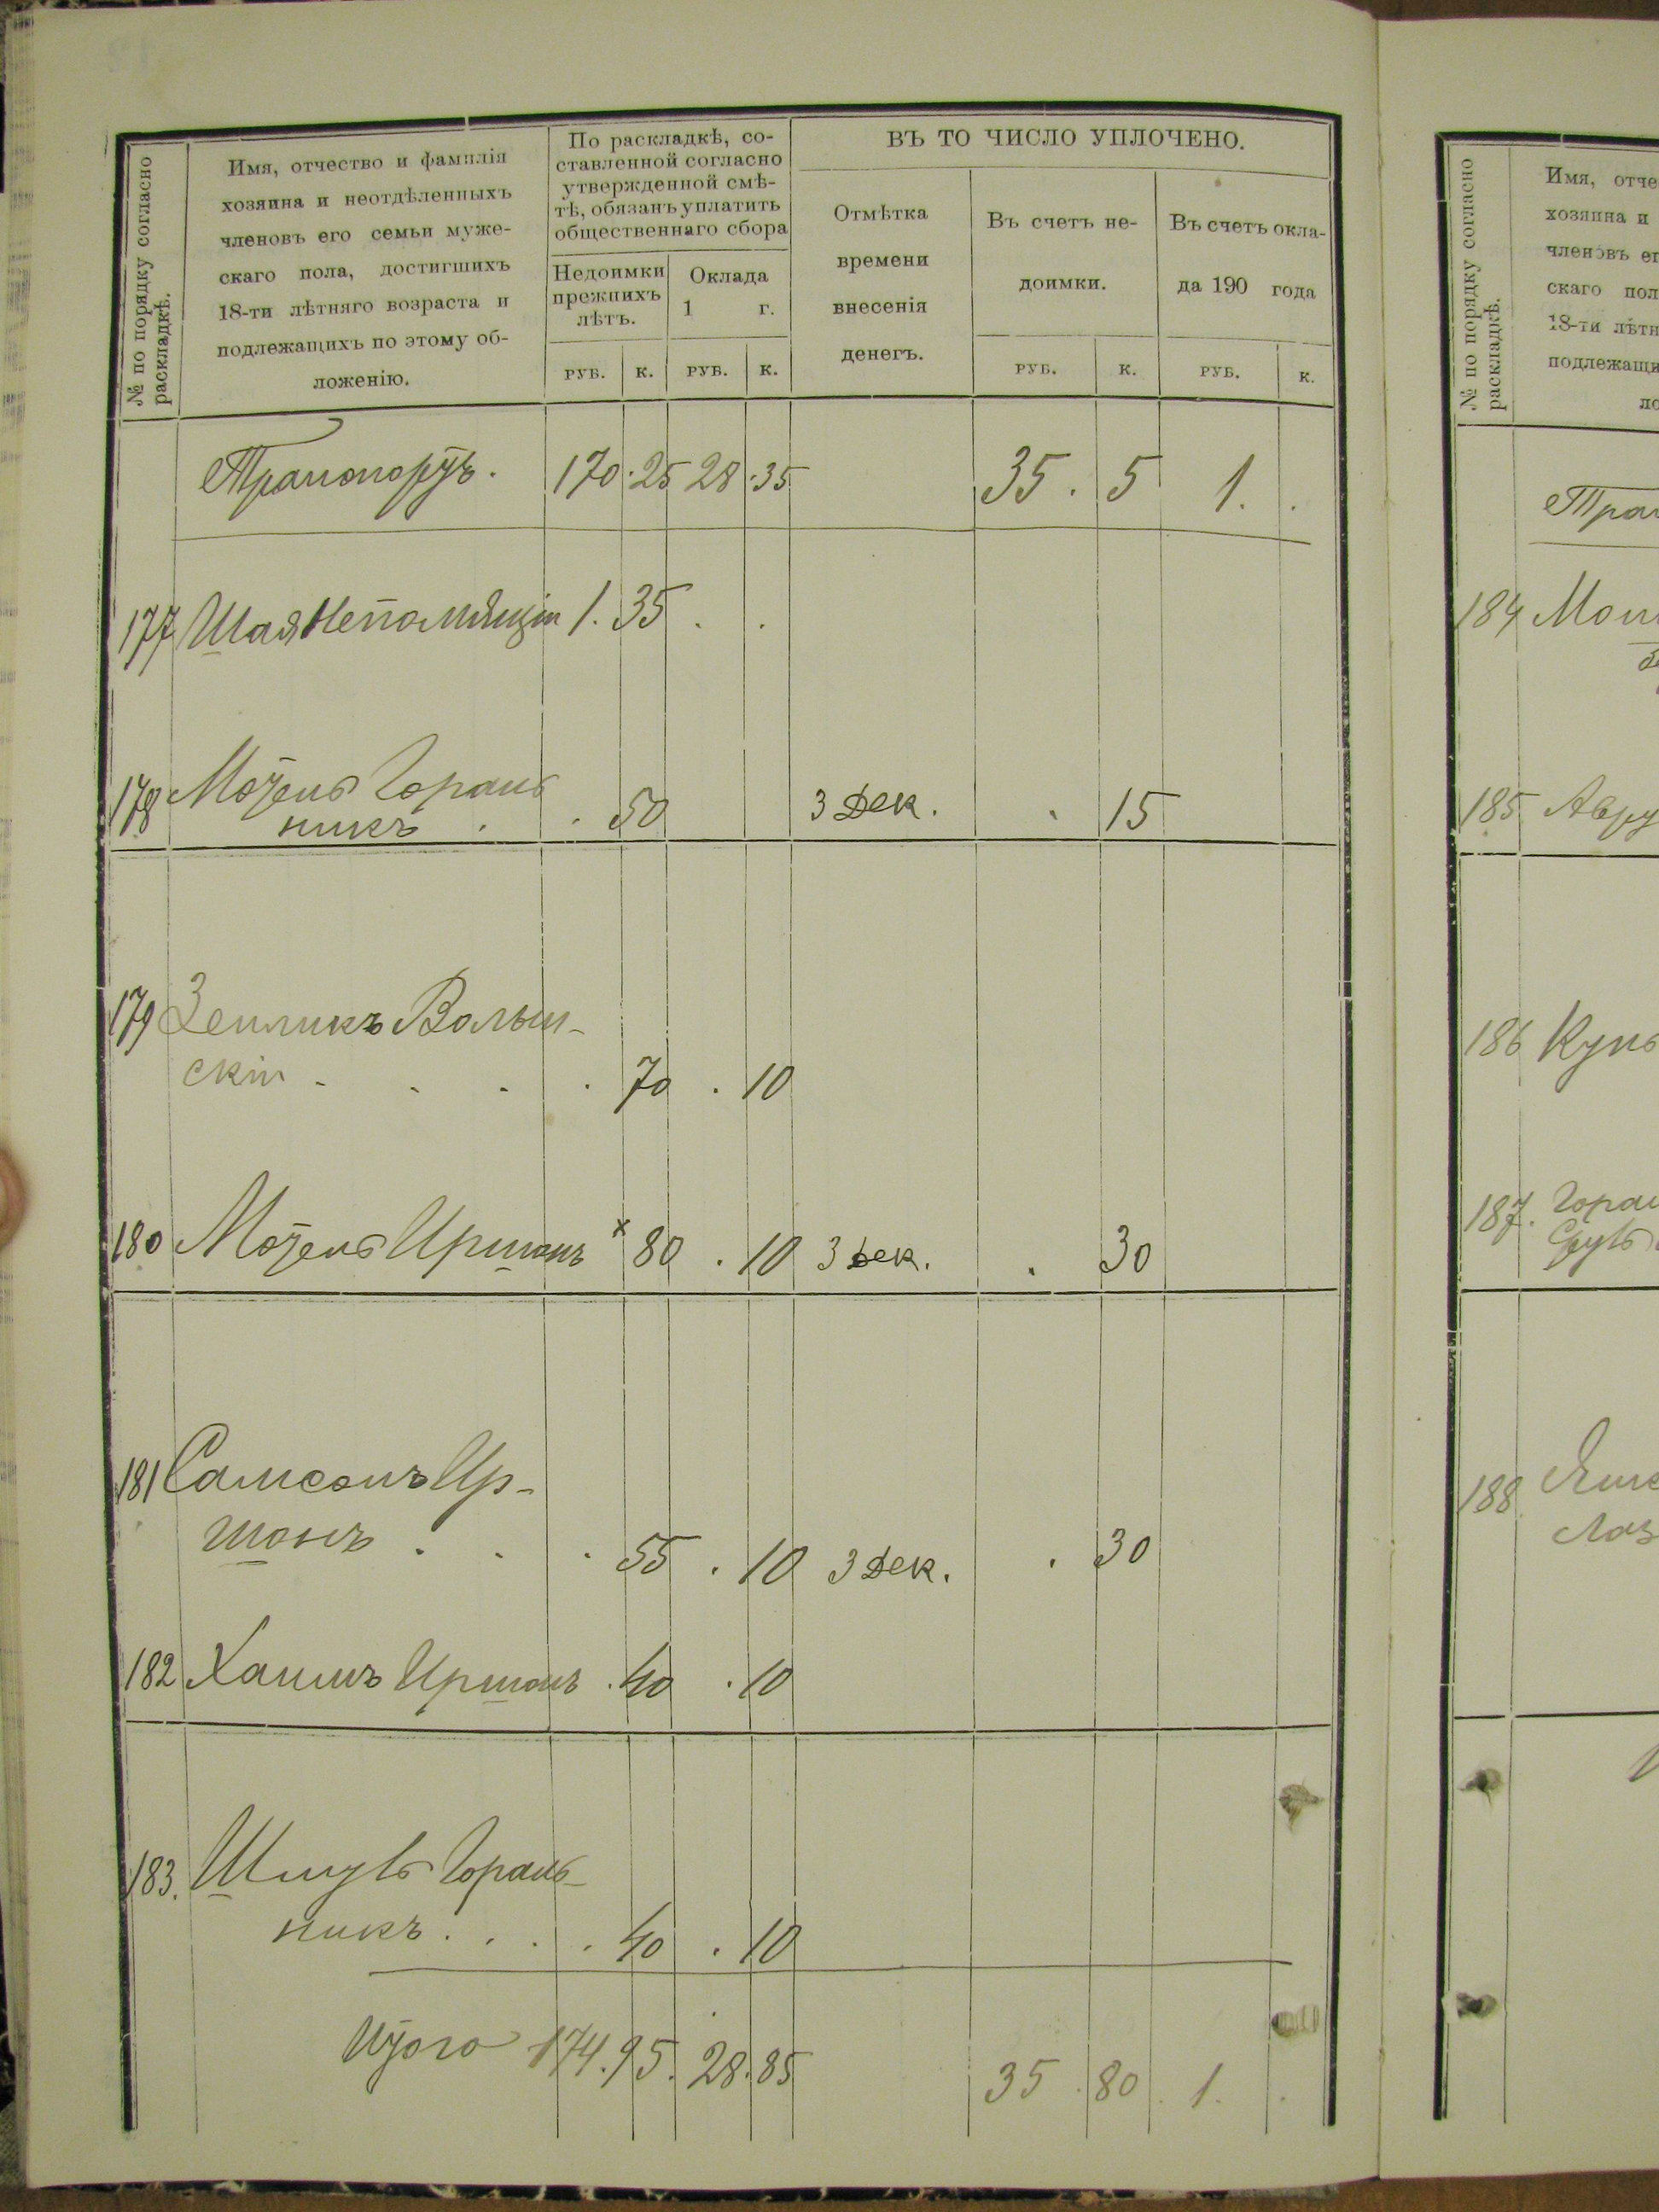 № по порядку согласно
раскладкѣ.
Имя, отчество и фамилія
хозяина и неотдѣленныхъ
членовъ его семьи муже-
скаго пола, достигшихъ
18-ти лѣтняго возраста и
подлежащихъ по этому об-
ложенію.
По раскладкѣ, со-
ставленной согласно
утвержденной смѣ-
тѣ, обязанъ уплатить
общественнаго сбора
Недоимки
прежнихъ
лѣтъ.
Оклада
1 г.
РУБ. К. РУБ. К.
ВЪ ТО ЧИСЛО УПЛОЧЕНО.
Отмѣтка
времени
внесенія
денегъ.
Въ счетъ не-
доимки.
РУБ. К.
Въ счетъ окла-
да 190 года
РУБ. К.
Транспортъ. 170.25 28.35 35. 5 1. .
177 Шая Непомнящій 1. 35 . .
178 Мотель Гораль
никъ . . 50 3 Дек. . 15
179 Зейликъ Волын-
скій - . . . 70 . 10
180 Мотель Иршонъ × 80 . 10 3 Дек. . 30
181 Самсонъ Ир-
шонъ . . . 55 . 10 3 Дек. . 30
182 Хаимъ Иршонъ . 40 . 10
183. Шмуль Гораль-
никъ . . . . 40 . 10
Итого 174.95. 28.85 35 . 80 . 1. .
№ по порядку согласно
раскладкѣ.
Имя, отче
хозяина и
членовъ ег
скаго пол
18-ти лѣтн
подлежащи
ло
Тран
184
185 Авру
186 Кун
187.
188